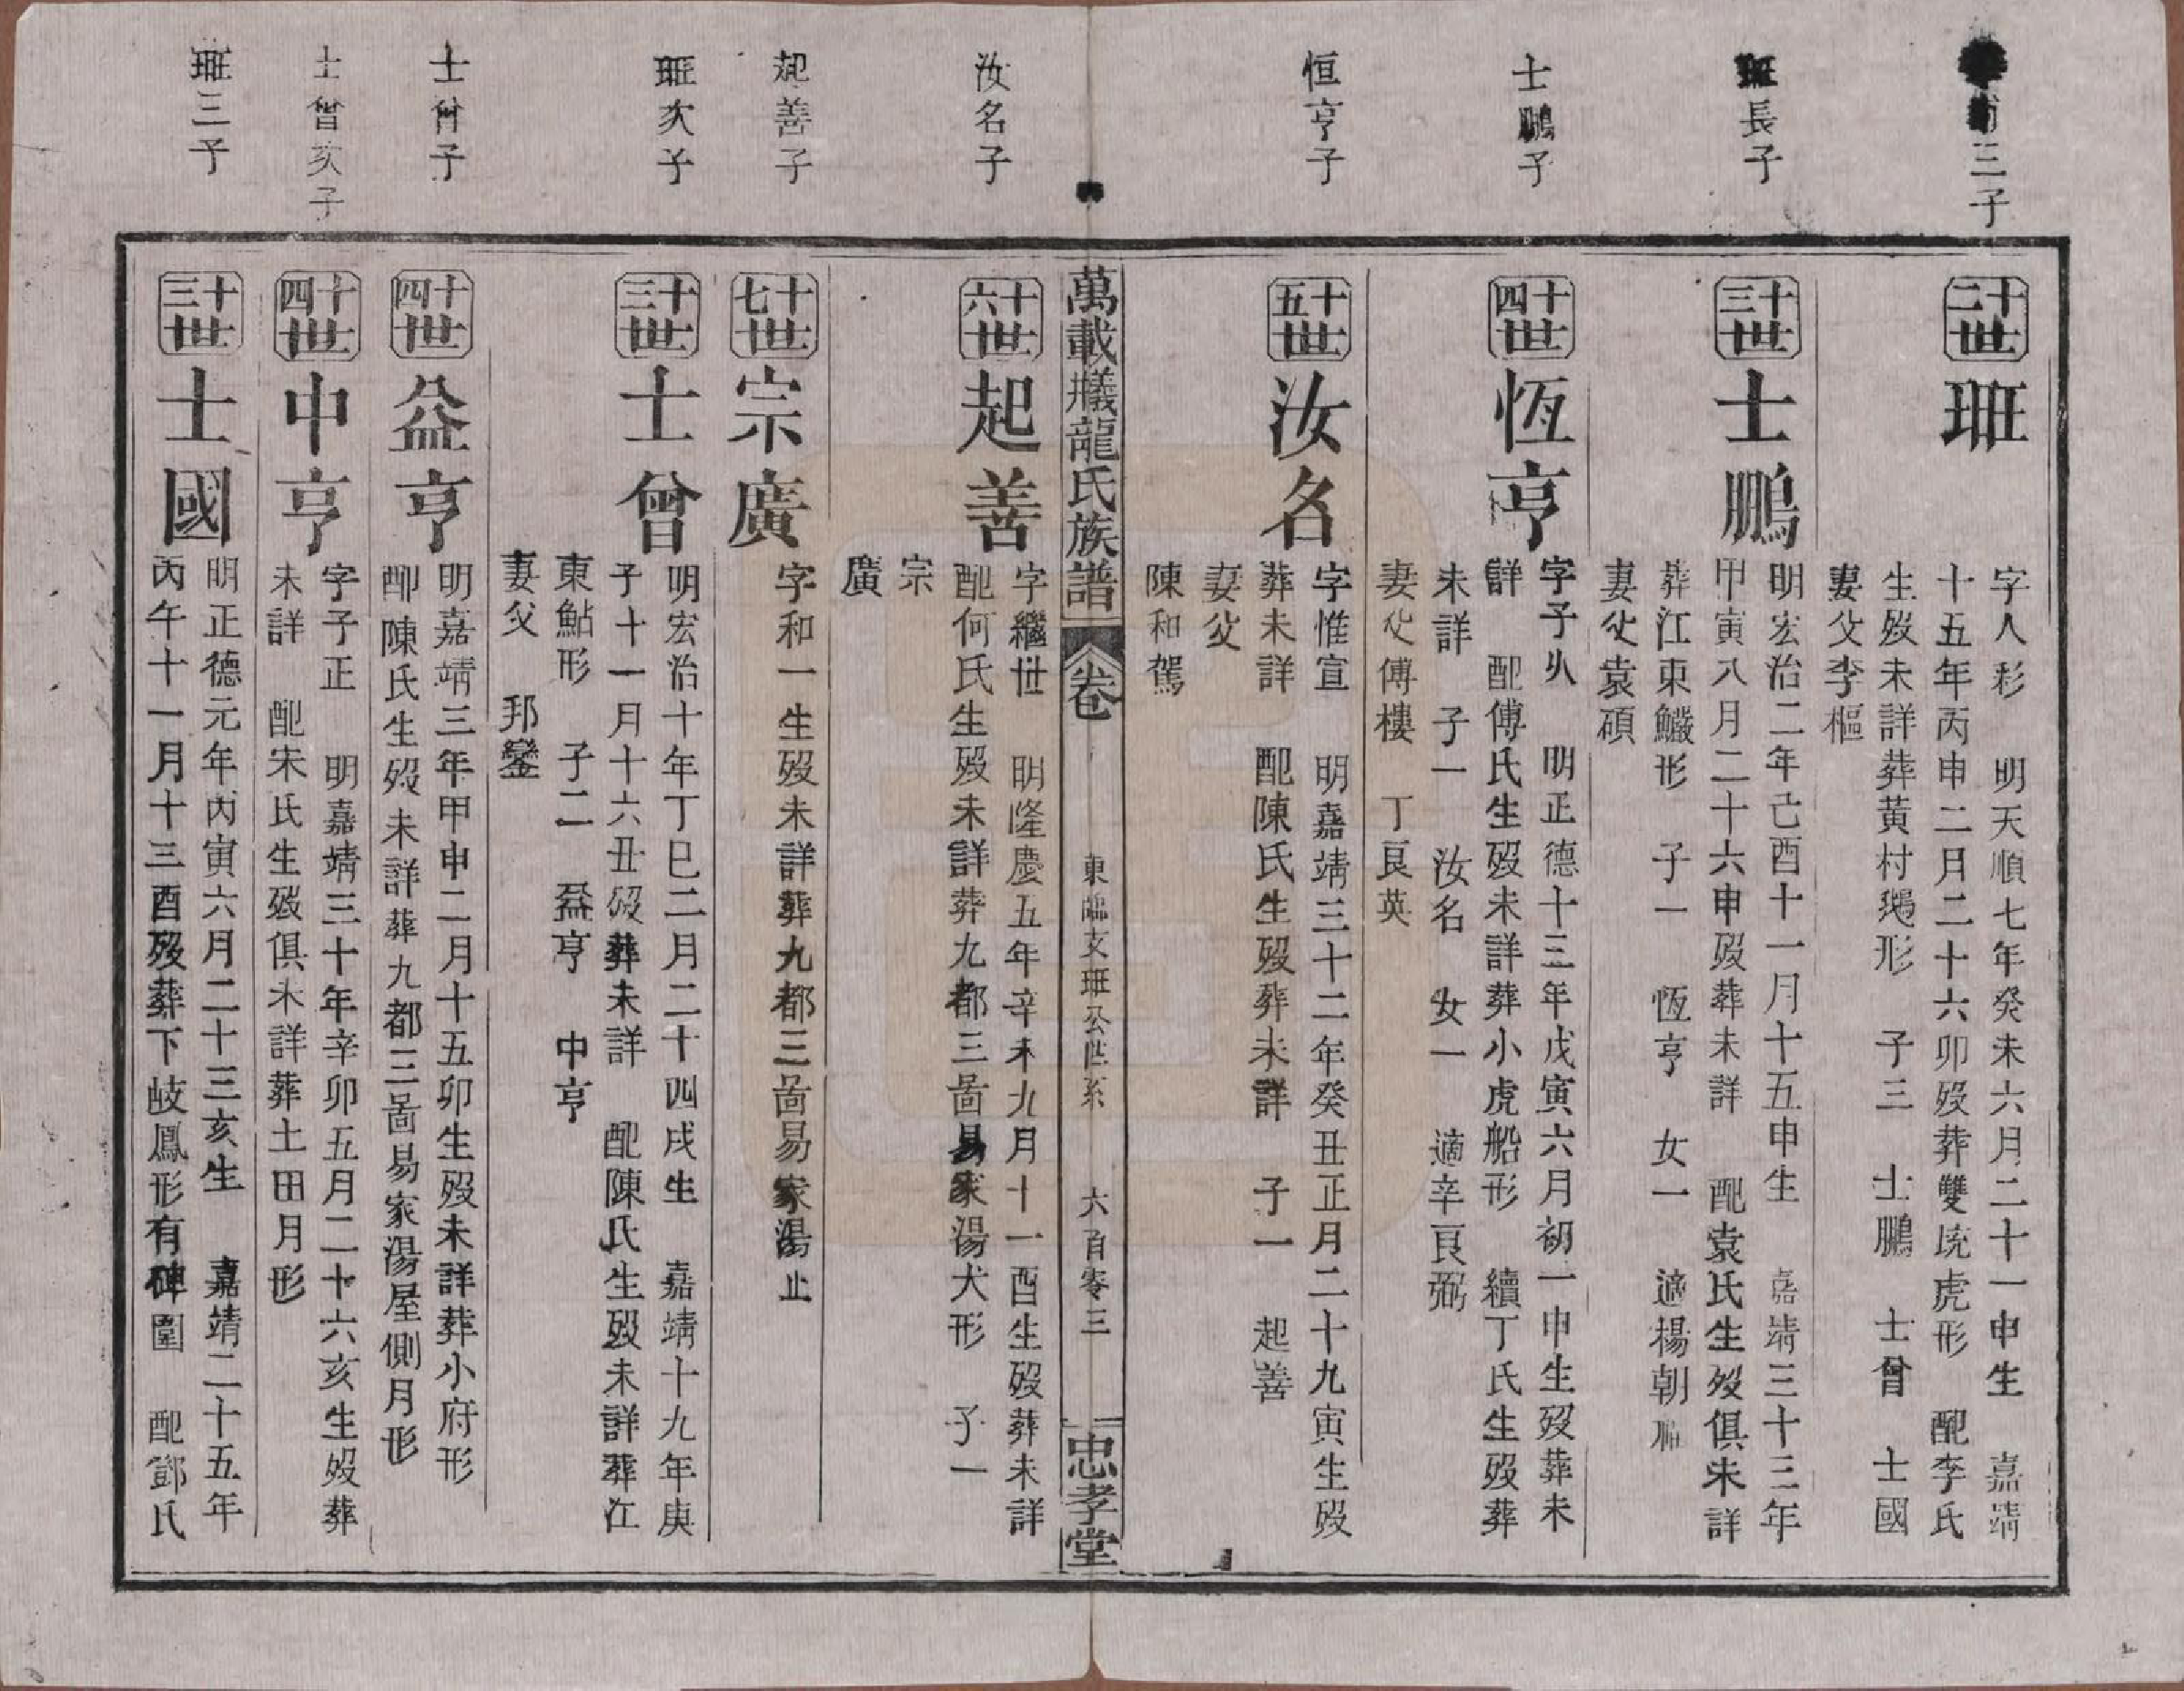 三子
十二世
班
字人彩 明天順七年癸未六月二十一申生 嘉靖
十五年丙申二月二十六卯歿葬雙坑虎形 配李氏
生歿未詳葬黃村形 子三 士鵬 士曾 士國
妻父李樞
班長子
十三世
士鵬
明宏治二年己酉十一月十五申生 嘉靖三十三年
甲寅八月二十六申歿葬未詳 配袁氏生歿俱未詳
葬江東形 子一 恆亨 女一 適楊朝
妻父袁碩
士鵬子
十四世
恆亨
字子火 明正德十三年戊寅六月初一申生歿葬未
詳 配傅氏生歿未詳葬小虎船形 續丁氏生歿葬
未詳 子一 汝名 女一 適辛良弼
妻父傅樓 丁良英
恒亨子
十五世
汝名
字惟宣 明嘉靖三十二年癸丑正月二十九寅生歿
葬未詳 配陳氏生歿葬未詳 子一 起善
妻父
陳和駕
萬載檥龍氏族譜
卷
東支班公世系
六百零三
忠孝堂
汝名子
十六世
起善
字繼世 明隆慶五年辛未九月十一酉生歿葬未詳
配何氏生歿未詳葬九都三啚易家湯犬形 子一
宗
廣
起善子
十七世
宗廣
字和一生歿未詳葬九都三啚易家湯止
班次子
十三世
士曾
明宏治十年丁巳二月二十四戌生 嘉靖十九年庚
子十一月十六丑歿葬未詳 配陳氏生歿未詳葬江
東鮎形 子二 益亨 中亨
妻父 邦鑾
士曾子
十四世
益亨
明嘉靖三年甲申二月十五卯生歿未詳葬小府形
配陳氏生歿未詳葬九都三啚易家湯屋側月形
士曾次子
十四世
中亨
字子正 明嘉靖三十年辛卯五月二十六亥生歿葬
未詳 配宋氏生歿俱未詳葬土田月形
班三子
十三世
士國
明正德元年丙寅六月二十三亥生 嘉靖二十五年
丙午十一月十三酉歿葬下岐鳳形有碑圍 配鄧氏